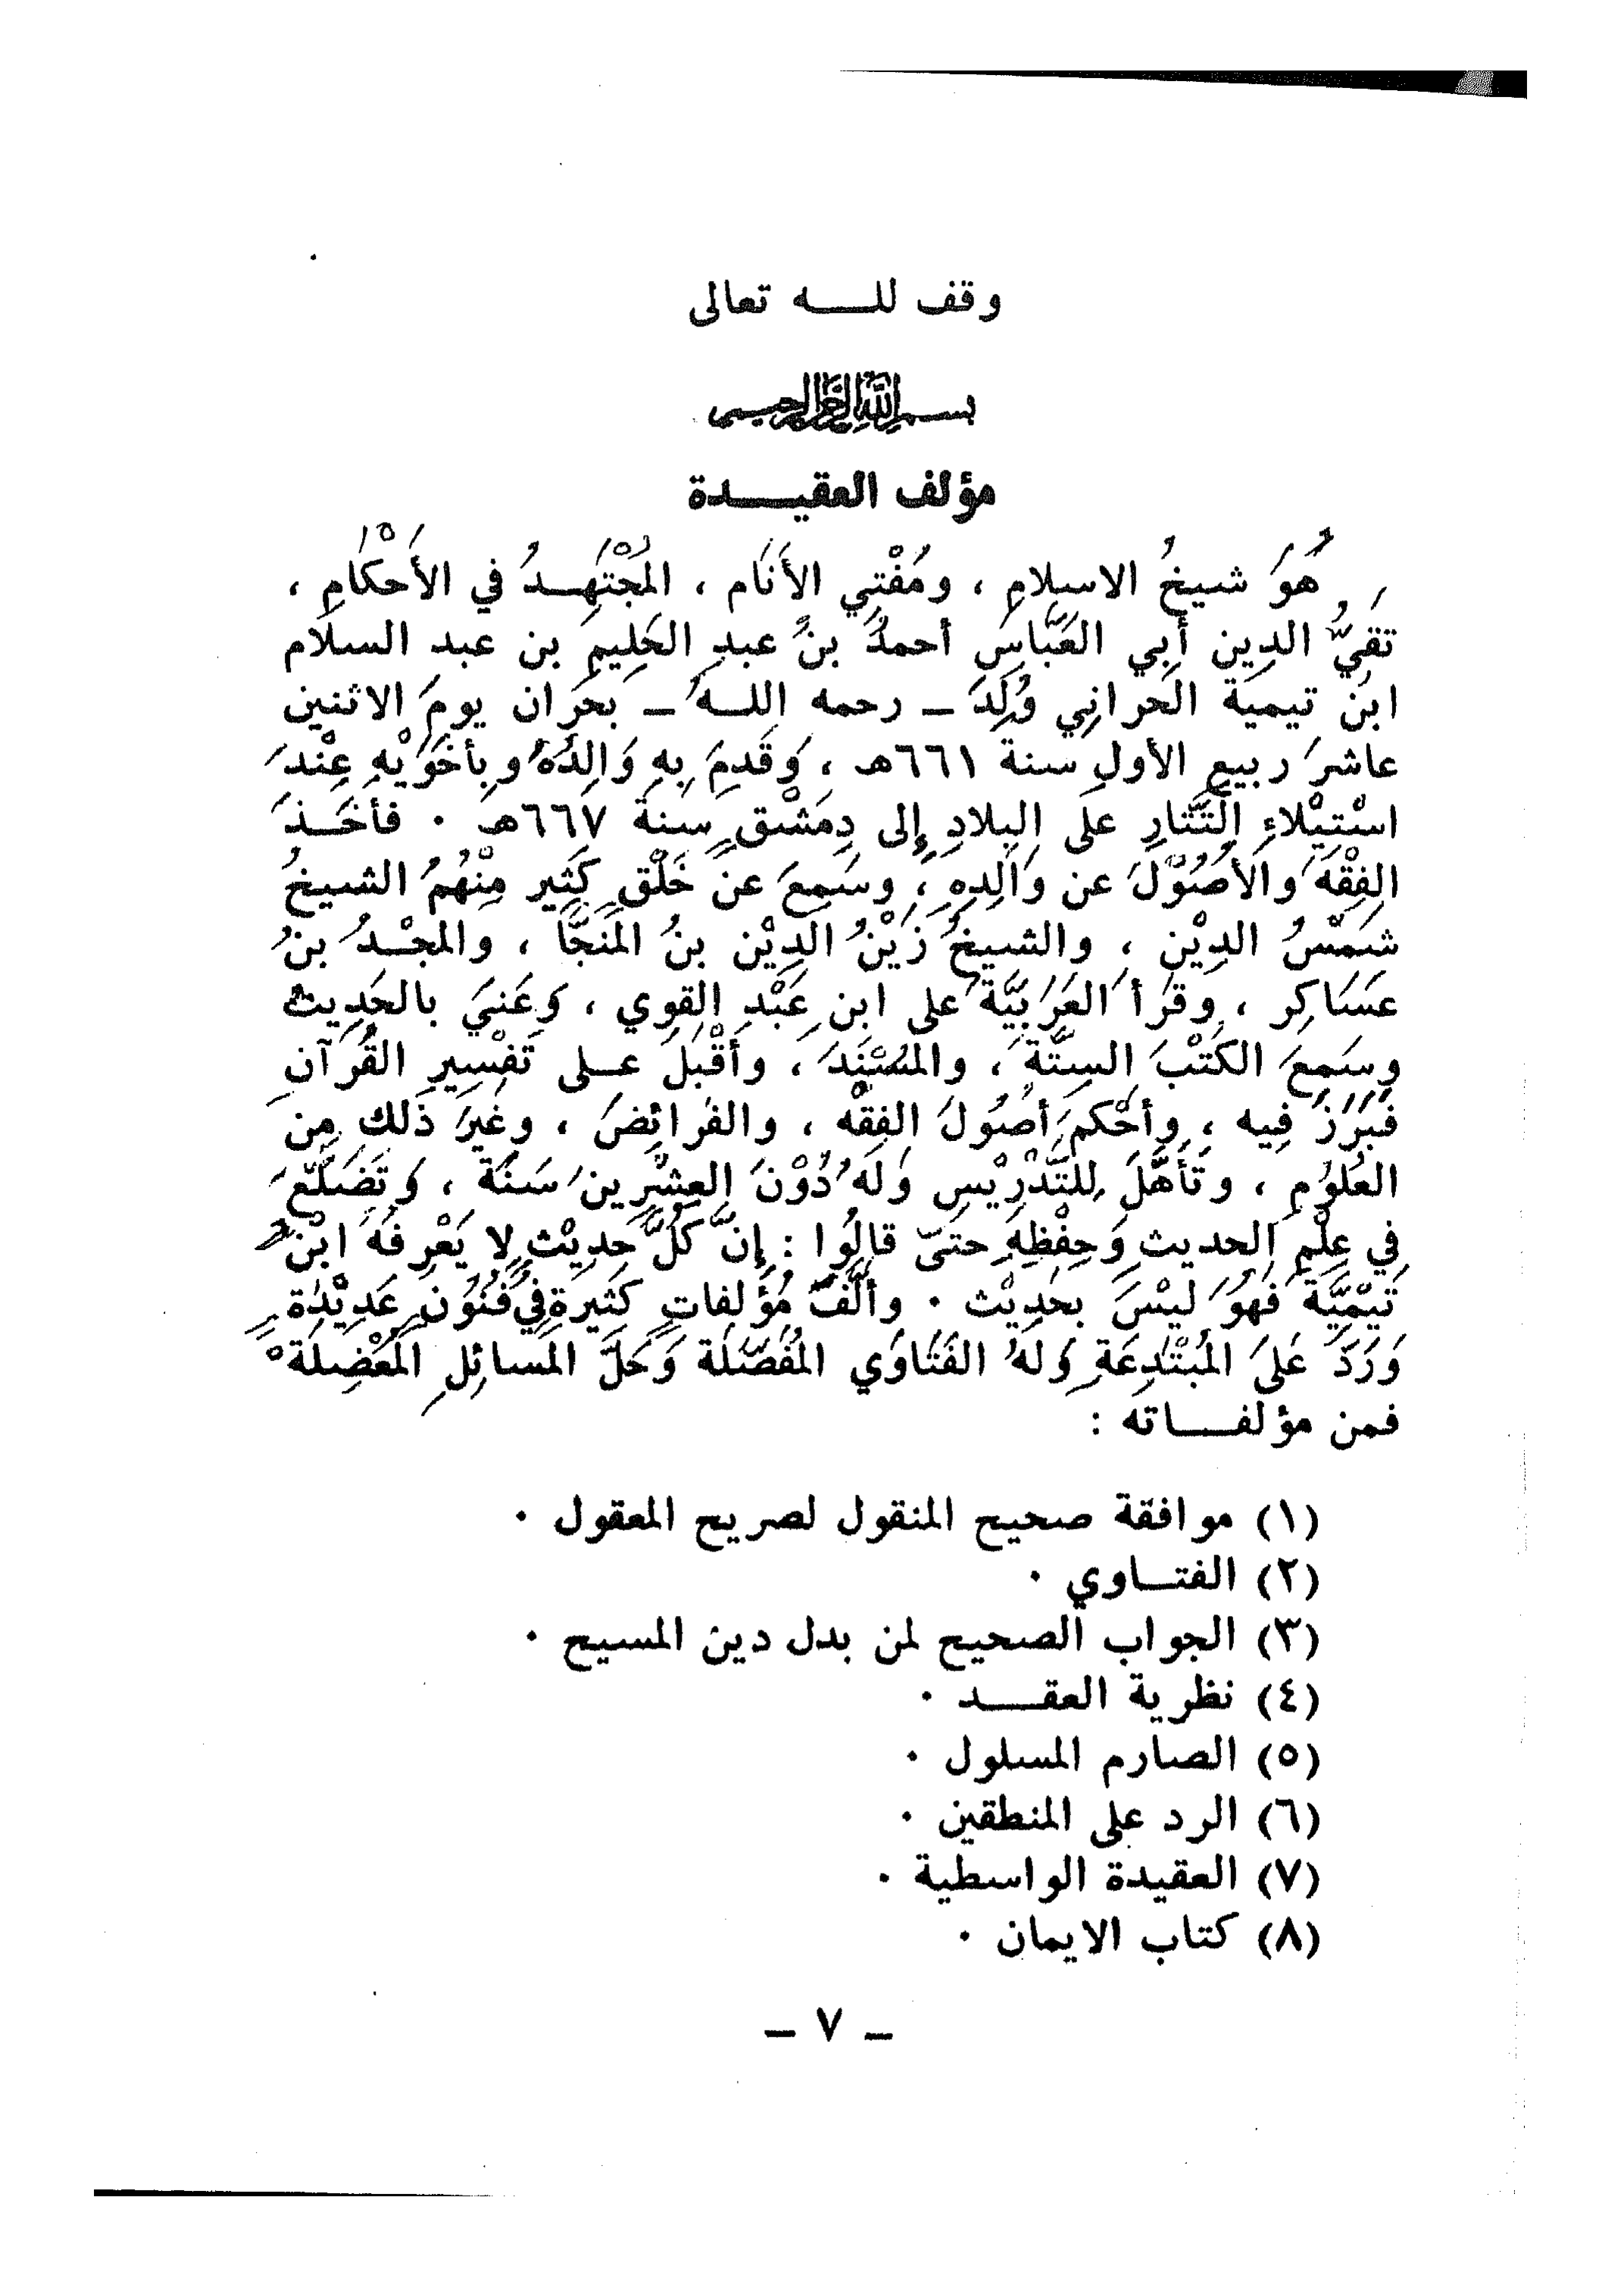 وقف للـــه تعالى
بسم الله الرحمن الرحيم
مؤلف العقيـــدة
هُوَ شيخُ الاسلامِ ، ومُفْتِي الأَنَام ، المُجْتَهِـدُ في الأَحْكَامِ ،
تقيُّ الدين أبي العَبَّاسِ أحمدُ بنُ عبدِ الحَلِيمِ بن عبد السلام
ابنُ تيمية الحراني وُلِدَ – رحمه اللـهُ – بحَرَان يومَ الاثنين
عاشرَ ربيع الأولِ سنة ٦٦١هـ ، وَقَدِمَ بِهِ وَالِدُهُ وبِأخَوَيْهِ عِنْدَ
اسْتِيْلاءِ التَّتَارِ على البلادِ إِلى دِمَشْقٍ سنةَ ٦٦٧هـ . فأخَـذَ
الفِقْهَ والأصُوْلَ عن وَالِدِهِ ، وسَمِعَ عنْ خَلْقٍ كَثِيرٍ مِنْهُمُ الشيخُ
شَمْسُ الدِيْنِ ، والشيخُ زَيْنُ الدِيْنِ بنُ المُنَجَّا ، والمجْـدُ بنُ
عَسَاكِر ، وقَرَأ العَرَبَيَّةَ على ابنِ عَبْدِ القوي ، وَعَنيَ بالحَدِيثِ
وسَمِعَ الكُتْبَ السِتَّةَ ، والمُسْنَدَ ، وأَقْبَلَ عـلى تَفْسِيرِ القُرآنِ
فَبَرَزَ فِيه ، وأَحْكَمَ أُصُولَ الفِقْه ، والفَرائِضَ ، وغَيْرَ ذَلك مِن
العُلُوْمِ ، وتَأَهَّلَ لِلتَّدْرِيْسِ وَلَهُ دُوْنَ العِشْرِين سَنَة ، وَتَضَلَّعَ
فِي عِلْمِ الحديثِ وَحِفْظِهِ حتىّ قالُوا : إِنَّ كُلَّ حَدِيْثٍ لا يَعْرِفَهُ ابْنُ
تَيْمِيَّةَ فَهُوَ ليْسَ بحَدِيْث . وألَّفَ مُؤَلفاتٍ كَثِيرةٍ فِي فُنُوْنٍ عَدِيْدَةٍ
وَرَدَّ عَلىَ المُبْتَدِعَةِ وَلَهُ الفَتَاوَي المُفَصَّلَة وَحَلَّ المسائِلِ المُعْضِلَةْ
فمن مؤلفـــاته :
(١) موافقة صحيح المنقول لصريح المعقول .
(٢) الفتـــاوي .
(٣) الجواب الصحيح لمن بدل دين المسيح .
(٤) نظرية العقـــد .
(٥) الصارم المسلول .
(٦) الرد على المنطقين .
(٧) العقيدة الواسطية .
(٨) كتاب الايمان .
– ٧ –